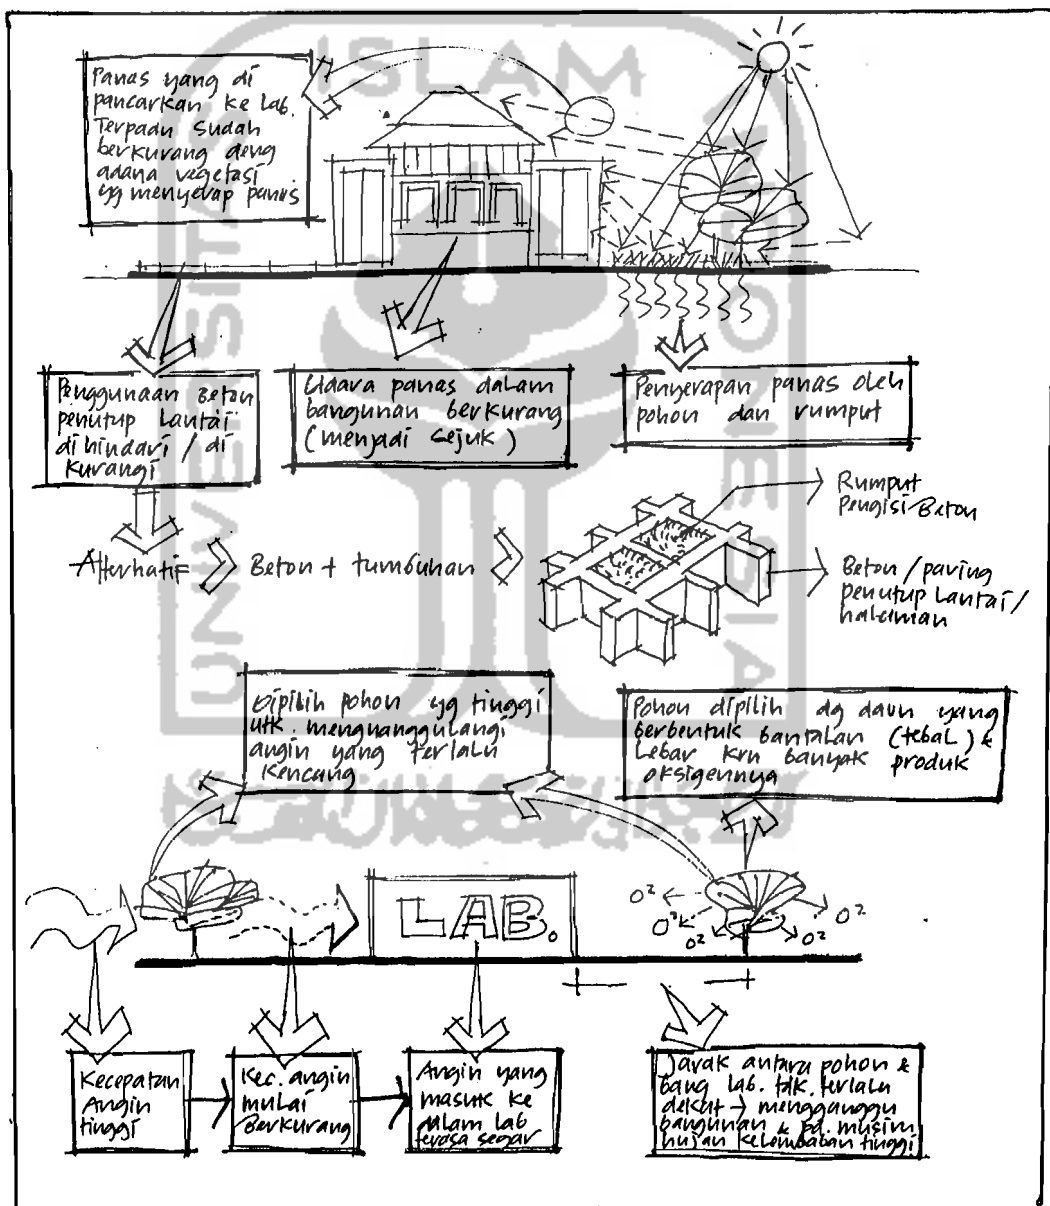 Panas yang di
pancarkan ke lab.
Terpadu sudah
berkurang deng
adana vegetasi
yg menyerap panas
Penggunaan Beton
penutup Lantai
dihindari / di
Kurangi
Udara panas dalam
bangunan berkurang
(menjadi sejuk)
Penyerapan panas oleh
pohon dan rumput
Alternatif
Beton + tumbuhan
Rumput
Pengisi Beton
Beton / paving
penutup Lantai /
halaman
Dipilih pohon yg tinggi
utk. menguanggulangi
angin yang terlalu
kencang
Pohon dipilih dg daun yang
berbentuk bantalan (tebal) &
Lebar krn banyak produk
oksigennya
LAB.
O²
O²
O²
O²
O²
Kecepatan
Angin
tinggi
Kec. angin
mulai
Berkurang
Angin yang
masuk ke
dalam lab
terasa segar
Jarak antara pohon &
bang lab. tdk. terlalu
dekat → mengganggu
bangunan & pd. musim
hujan kelembaban tinggi
UNIVERSITAS
ISLAM
INDONESIA